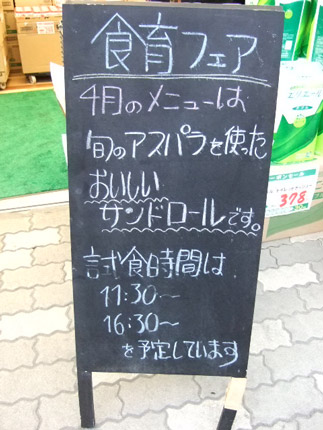 食育フェア
4月のメニューは、
旬のアスパラを使った
おいしい
サンドロールです。
試食時間は
11:30〜
16:30〜
を予定しています
378